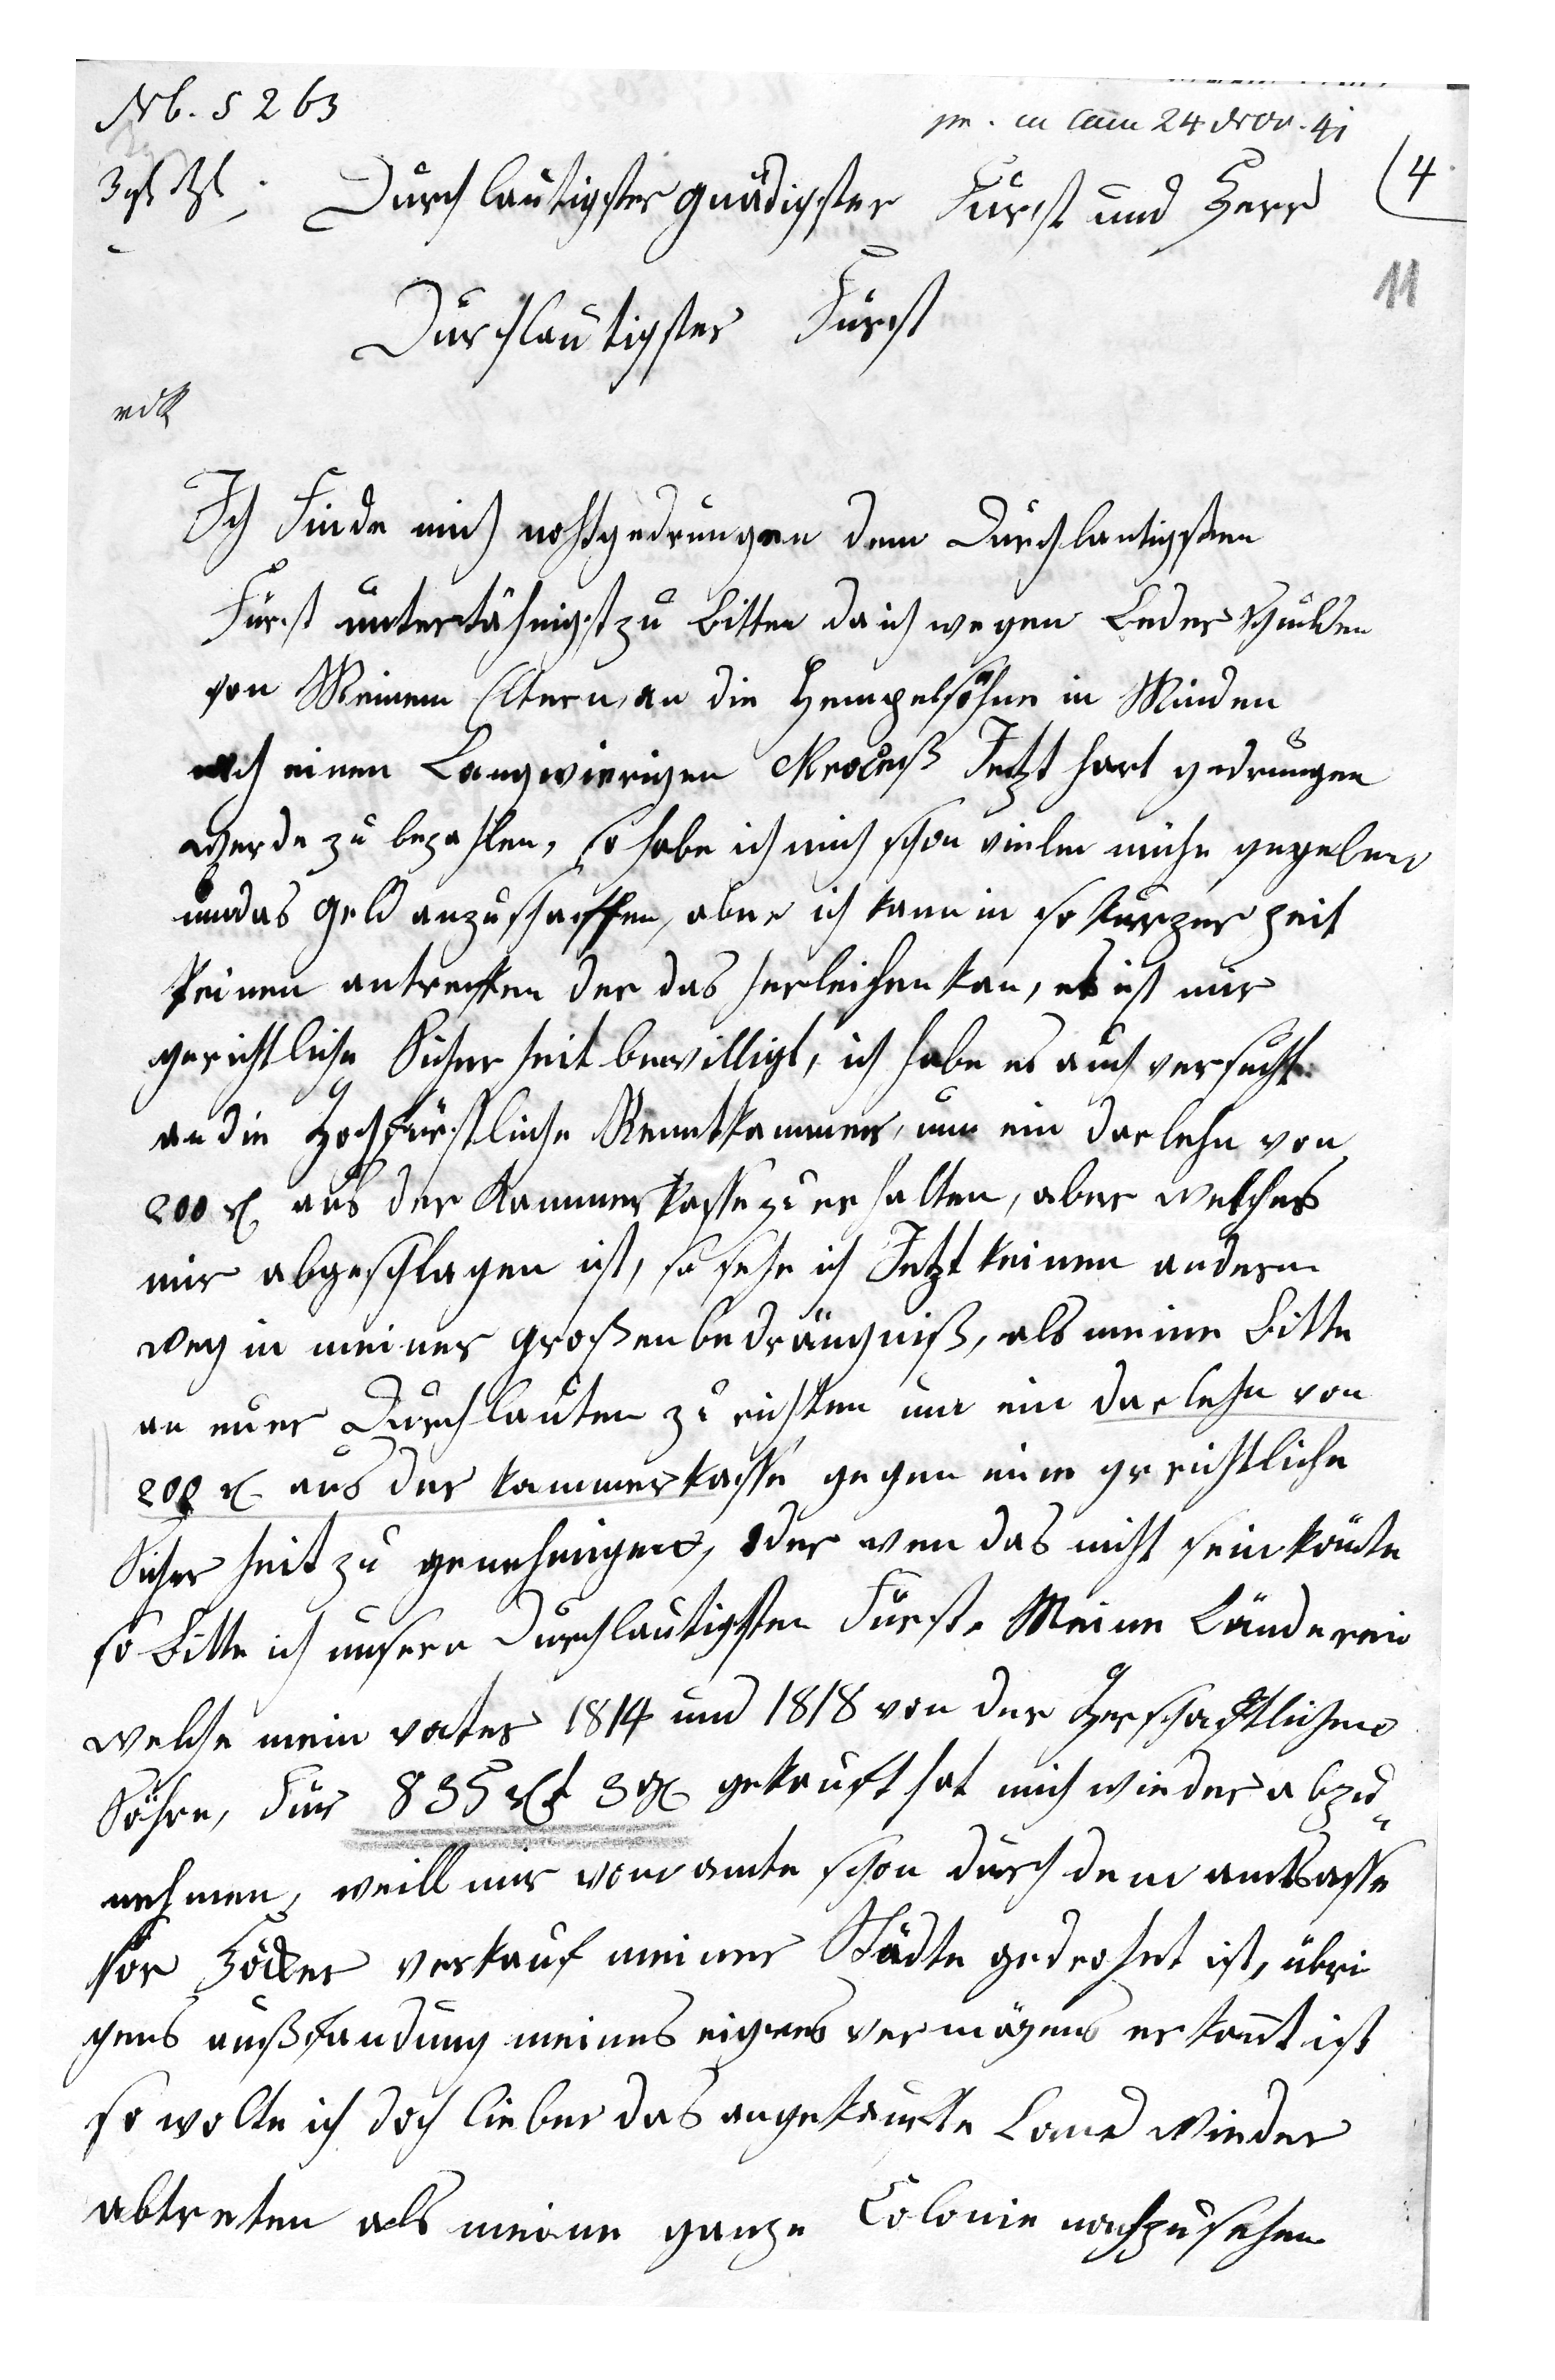 Nb. 5263
pr. in Cam 24 Nov. 41
4
Durchlautigster gnädigster Fürst und Herr
11
Durchlautigster Fürst
Ich Finde mich nohtgedrungen dem Durchlautigsten
Fürst untertähnigst zu Bitten da ich wegen Leder schulden
von Meinem Eltern, an die Hempelsöhne in Minden
nach einen Langwierigen Proceß Jetzt hart gedrungen
werde zu bezahlen, so habe ich mich schon vielen mühe gegeben
um das Geld anzuschaffen, aber ich kann in so kurzer zeit
keinen antreffen der das herleihen kan, es ist mir
gerichtliche Sicherheit bewilligt, ich habe es auch versucht
an die Hochfürstliche Renntkammer, um ein darlehn von
200 rt aus der Kammerkasse zu erhalten, aber welches
mir abgeschlagen ist, so sehe ich Jetzt keinen andern
weg in meiner großen bedrängniß, als meine Bitte
an euer Durchlauten zu richten um ein darlehn von
200 rt aus der kammerkasse gegen eine gerichtliche
Sicherheit zu genehmigen, oder wen das nicht sein könte
so Bitte ich unsern Durchlautigsten Fürst, Meine Länderein
welche mein vater 1814 und 1818 von der Herschaftlichen
Föhre, für 835 rt 3 gr gekauft hat mich wieder abzu„
nehmen, weill mir vom amte schon durch dem amtsasse
ssor Höcker verkauf meiner Städte gedrohet ist, übri
gens außfandung meines eignes vermögens erkant ist
so wolte ich doch lieber das angekaufte Land wieder
abtreten als meine ganze Colonie nachzusehen